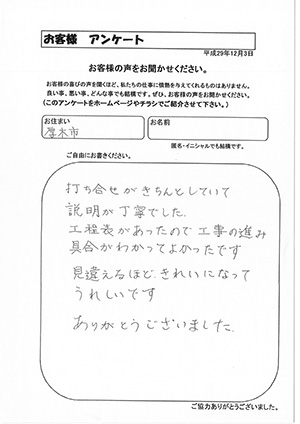 お客様　アンケート
平成29年12月3日
お客様の声をお聞かせください。
お客様の喜びの声を聞くほど、私たちの仕事に情熱を与えてくれるものはありません。
良い事、悪い事、どんな事でも結構です。ぜひ、お客様の声をお聞かせください。
(このアンケートをホームページやチラシでご紹介させて下さい。)
お住まい
厚木市
お名前
匿名・イニシャルでも結構です。
ご自由にお書きください。
打ち合せがきちんとしていて
説明が丁寧でした.
工程表があったので工事の進み
具合がわかってよかったです
見違えるほどきれいになって
うれしいです
ありがとうございました.
ご協力ありがとうございました。